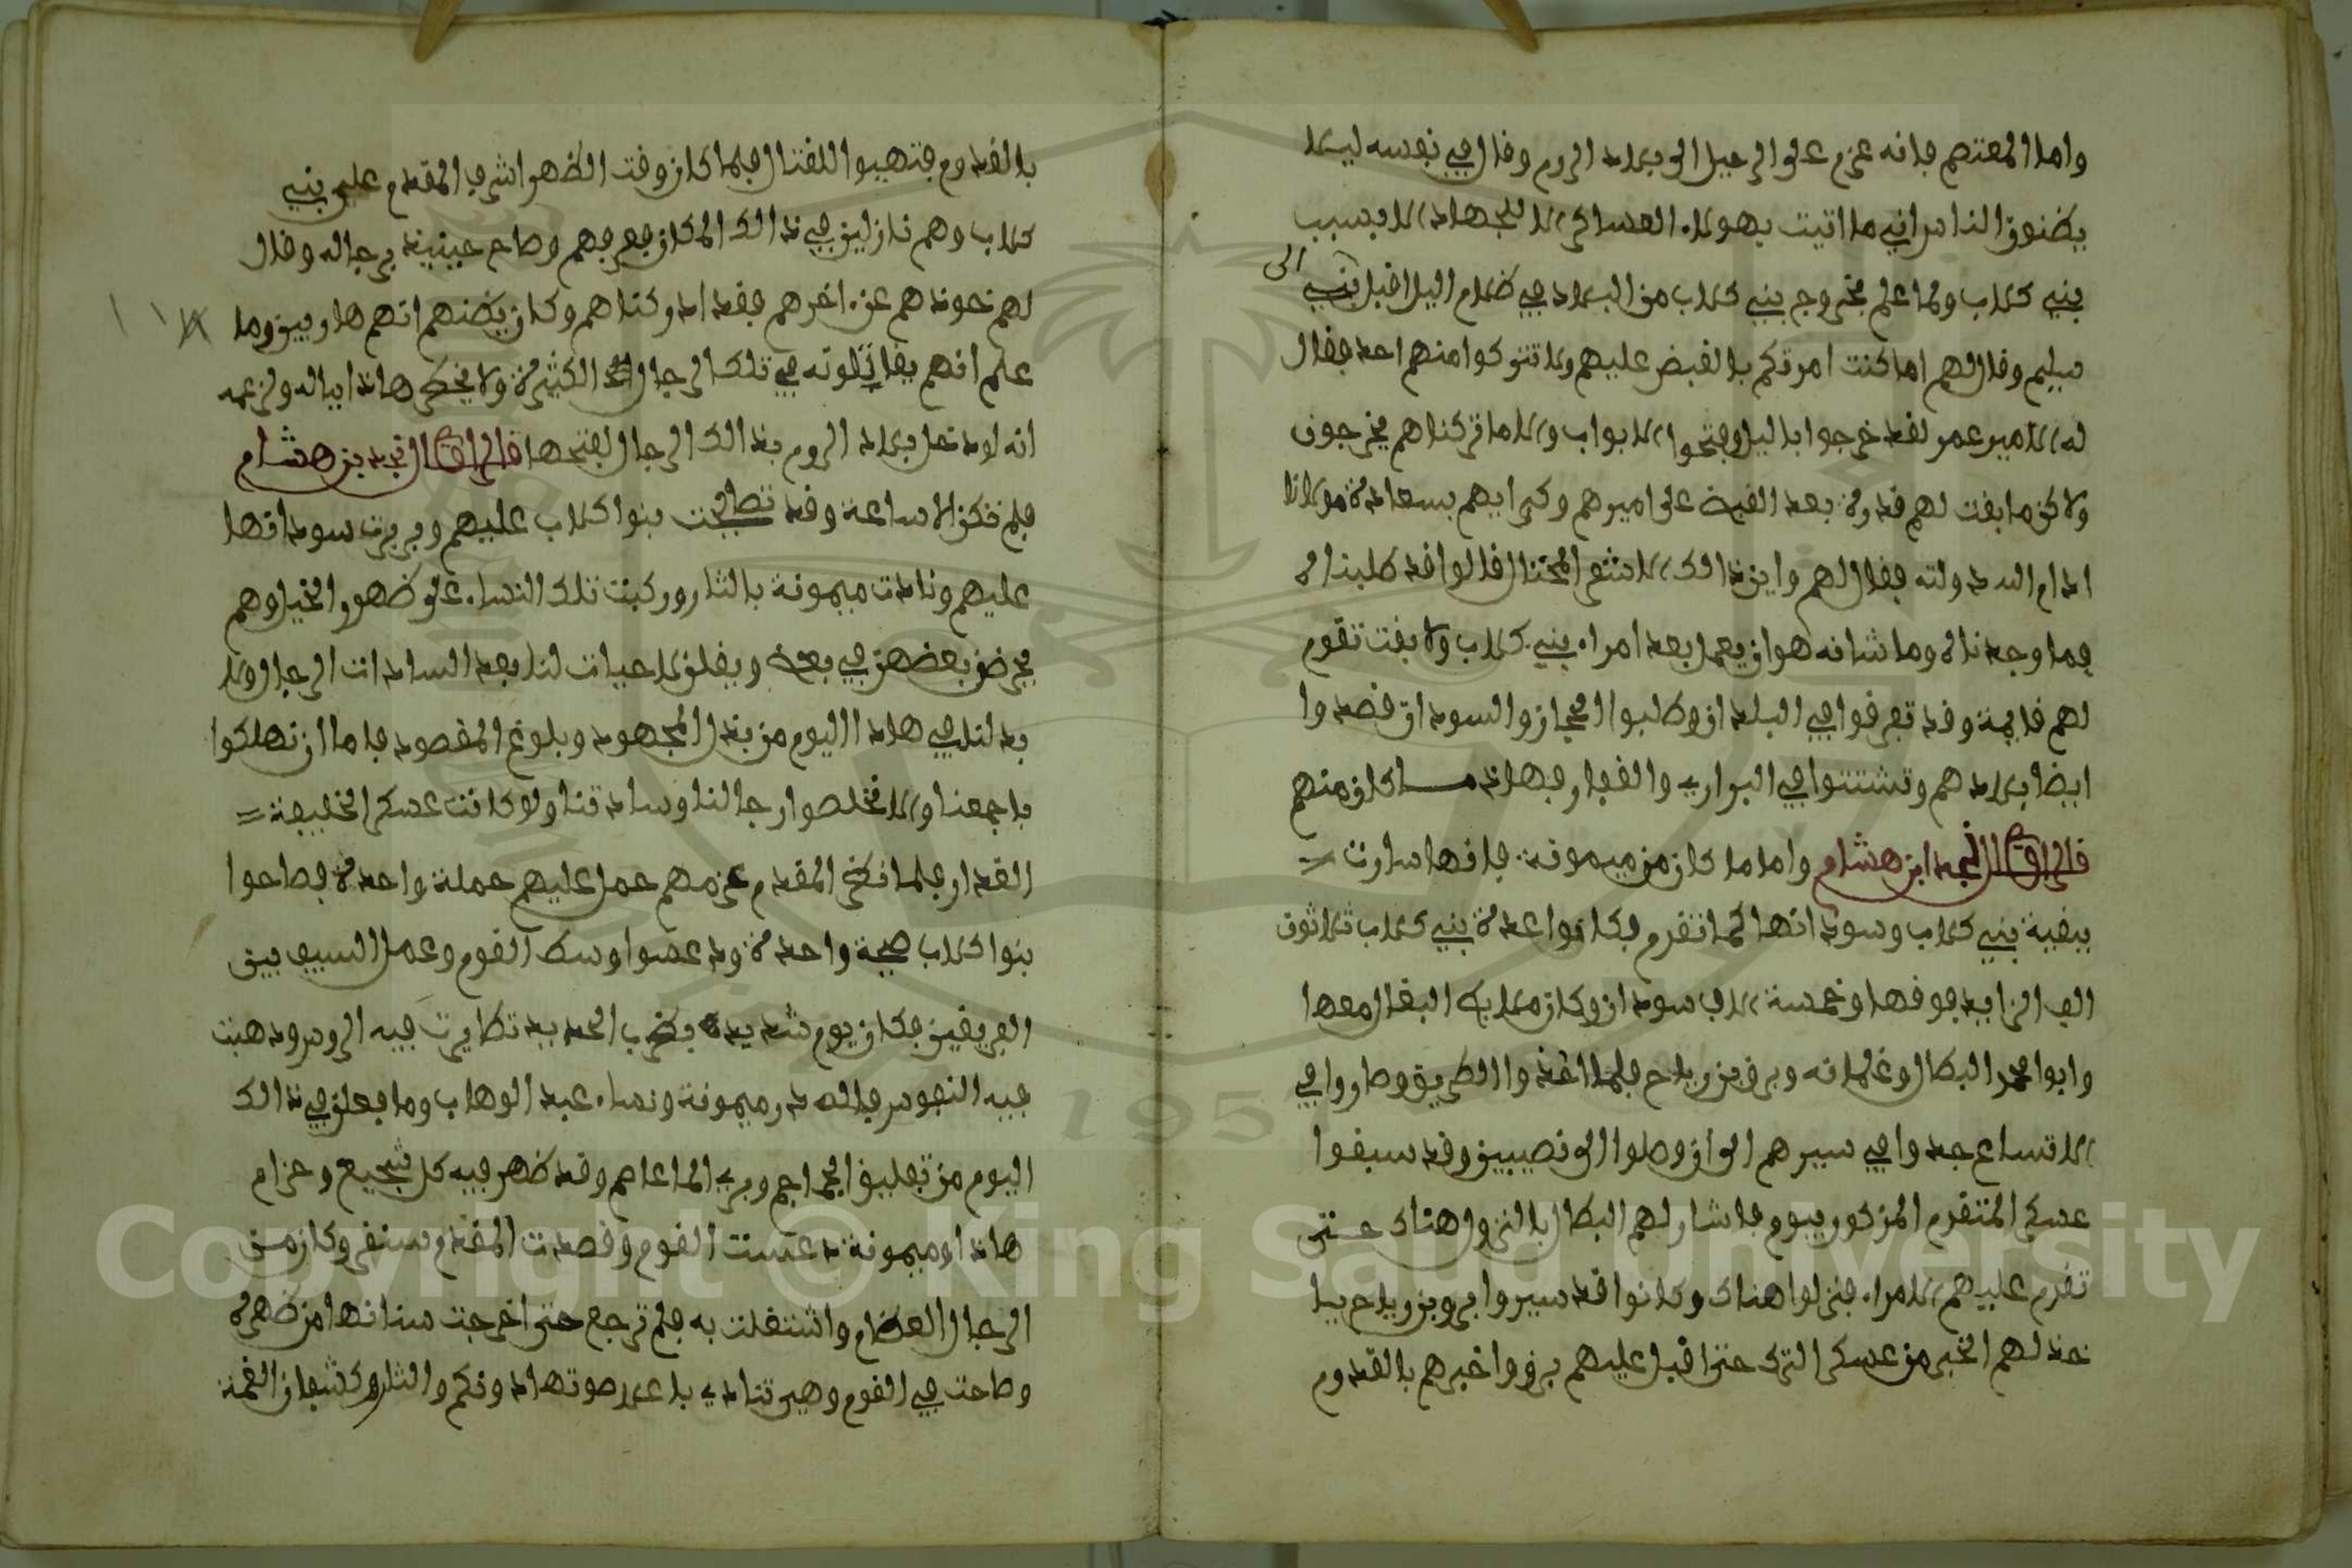 واما المعتصم فانه عزم على الرحيل الى بلاد الروم وقال في نفسه ليلا
يظنوا الناس اني ما اتيت بهولاء العساكر الا للجهاد الا بسبب
بني كلاب ولما علم بخروج بني كلاب من البلاد في ظلام اليل اقبل الى بني
سليم وقال لهم اما كنت امرتكم بالقبض عليهم ولا تتركوا منهم احد فقال
له الامير عمر لقد خرجوا باليل وفتحوا الابواب والا ما تركناهم يخرجون
ولاكن ما بقت لهم قدرة بعد القبض على اميرهم وكبرايهم بسعادة مولانا
ادام الله دولته فقال لهم واين ذالك الاشقر المحتال قالوا قد طلبناه
فما وجدناه وما شانه هو ان يعمل بعد امراء بني كلاب ولا بقت تقوم
لهم قايمة وقد تفرقوا في البلدان وطلبوا الحجاز والسودان قصدوا
ايضا بلادهم وتشتتوا في البراري والقفار فهاذا ما كان منهم
قال الراوي نجد ابن هشام واما ما كان من ميمونة فانها سارت
ببقية بني كلاب وسودانها كما تقدم فكانوا عدة بني كلاب ثلاثون
الف الزايد فوقها وخمسة الاف سودان وكان ملايك البغال معها
وابوا محمد البطال وغلمانه وبرقين رياح فلما اخذوا الطريق وصاروا في
الاتساع جدوا في سيرهم الى ان وصلوا الى نصيبين وقد سبقوا
عسكر المتقدم المذكور بيوم فاشار لهم البطال بالنزول هناك حتى
تقدم عليهم الامراء فنزلوا هناك وكانوا قد سيروا برقين رياح يا
خذ لهم الخبر من عسكر الترك حتى اقبل عليهم برق واخبرهم بالقدوم
بالقدوم فتهيوا للقتال فلما كان وقت الظهر اشرف المقدم على بني
كلاب وهم نازلين في ذالك المكان فعرفهم وصاح حينيذ برجاله وقال
لهم خوذهم عن اخرهم فقد ادركناهم وكان يظنهم انهم هاربين وما
علم انهم يقاتلونه في تلك الرجال الكثيرة ولا يخطر هاذا بباله ولزعمه
انه لو دخل بلاد الروم بذالك الرجال لفتحها قال الراوي نجد بن هشام
فلم تكن الا ساعة وقد تصايحت بنوا كلاب عليهم وبربرت سودانها
عليهم ونادت ميمونة بالثار وركبت تلك النساء على ظهور الخيل وهم
يحرضون بعضهن في بعض ويقلن لا حيات لنا بعد السادات الرجال ولا
بد لنا في هاذا اليوم من بذل المجهود وبلوغ المقصود فاما ان نهلكوا
باجمعنا والا نخلصوا رجالنا وسادتنا ولو كانت عسكر الخليفة
الغدار فلما نظر المقدم عزمهم حمل عليهم حملة واحدة فصاحوا
بنوا كلاب صيحة واحدة ودعسوا وسط القوم وعمل السيف بين
الفريقين فكان يوم شديد بضرب الحديد تطايرت فيه الروس وذهبت
فيه النفوس فلله در ميمونة ونساء عبد الوهاب وما فعلن في ذالك
اليوم من تفليق الجماجم وبري المعاصم وقد ظهر فيه كل شجيع وحزام
هاذا وميمونة دعست القوم وقصدت المقدم سنقر وكان من
الرجال العظام واشتغلت به فلم ترجع حتى اخرجت سنانها من ظهره
وصاحت في القوم وهي تنادي باعلا صوتها دونكم والثار وكشفان الغمة